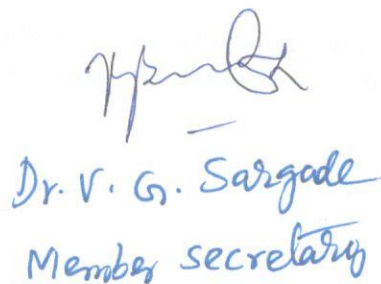 Dr. V. G. Sargade
Member secretary